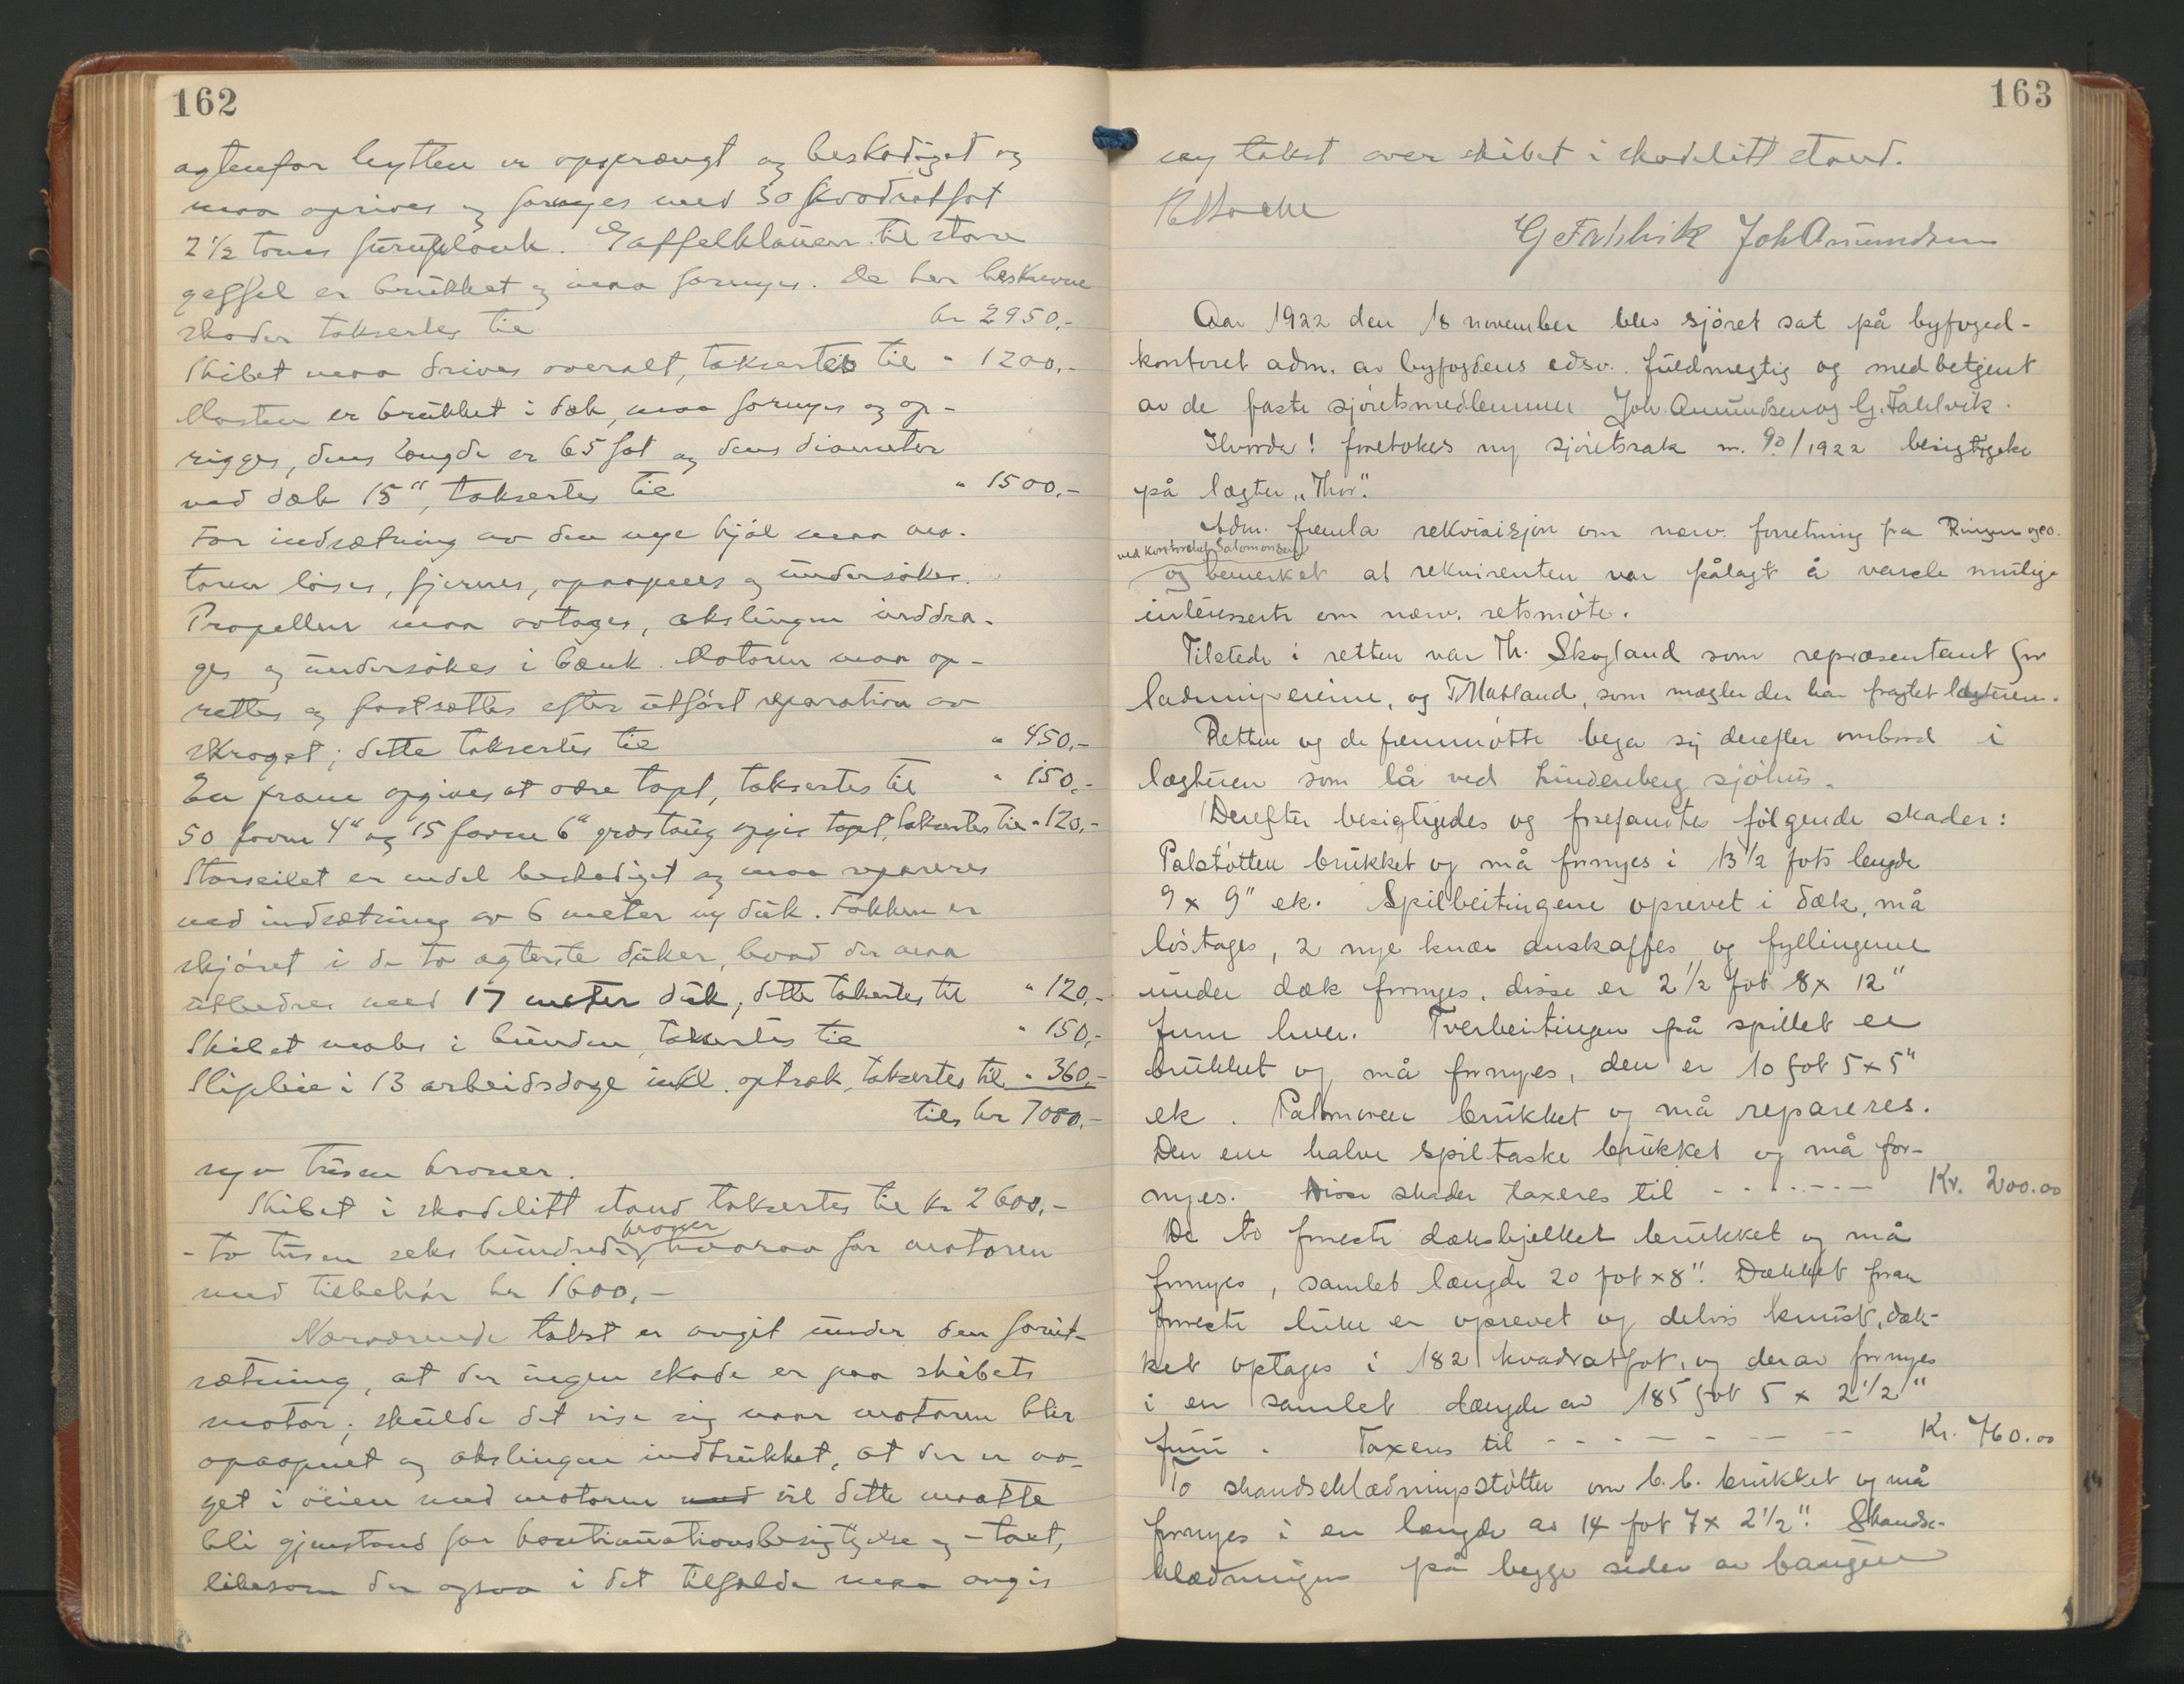 162
agtenfor hytten er opsprængt og beskadiget og
maa oprives og fornyes med 30 kvadratfot
2 1/2 toms furuplank. Gaffelklauen til store
gaffel er brukket og maa fornyes. De her beskrevne
skader taksertes til kr 2950,-
Skibet maa drives overalt, taksertes til " 1200,-
Masten er brukket i dæk, maa fornyes og op-
rigges, dens længde er 65 fot og dens diameter
ved dæk 15", taksertes til " 1500,-
For indsætning av den nye kjøl maa mo-
toren løses, fjernes, opaapnes og undersøkes.
Propellen maa avtages, akslingen inddra-
ges og undersøkes i bænk. Motoren maa op-
rettes og fastsættes efter utført reparation av
skroget; dette taksertes til " 450,-
En pram opgives at være tapt, taksertes til " 150,-
50 favne 4" og 15 favne 6" græstaug opgis tapt, taksertes til " 120,-
Storseilet er endel beskadiget og maa repareres
med indsætning av 6 meter ny duk. Fokken er
skjøret i de to agterste duker, hvad der maa
utbedres med 17 meter duk, dette taksertes til " 120,-
Skibet makes i bunden, taksertes til " 150,-
Slipleie i 13 arbeidsdage inkl. optræk, taksertes til " 360,-
tils kr 7000,-
syv tusen kroner.
Skibet i skadelitt stand taksertes til kr 2600,-
- to tusen seks hundrede kroner, hvorav for motoren
med tilbehør kr 1600,-
Nærværende takst er avgit under den forut-
sætning, at der ingen skade er paa skibets
motor; skulde det vise sig naar motoren blir
opaapnet og akslingen indtrukket, at der er no-
get i veien med motoren med vil dette maatte
bli gjenstand for kontinuationsbesigtigelse og -takst,
likesom der ogsaa i det tilfælde maa avgis
163
ny takst over skibet i skadelitt stand.
G Fahlvik Joh Amundsen
Aar 1922 den 18 november blev sjøret sat på byfoged-
kontoret adm. av byfogdens edsv. fuldmegtig og med betjent
av de faste sjøretsmedlemmer Joh. Amundsen og G. Fahlvik.
Hvorda! foretokes ny sjøretssak nr. 90/1922 besigtigelse
på lægter "Thor".
Adm. fremla rekvisisjon om nærv. forretning fra Ringen &co.
ved kontorchef Salomonsen
og bemerket at rekvirenten var pålagt å varsle mulige
interesserte om nærv. retsmøte.
Tilstede i retten var Th. Skogland som representant for
ladningseierne, og T. Matland, som megler der har fragtet lægteren.
Retten og de fremmøtte bega sig derefter ombord i
lægteren som lå ved Lindenberg sjøhus.
Derefter besigtigedes og forefantes følgende skader:
Palstøtten brukket og må fornyes i 13 1/2 fots lengde
9 x 9" ek. Spilbeitingene oprevet i dæk, må
løstages, 2 nye knær anskaffes og fyllingerne
under dæk fornyes, disse er 2 1/2 fot 8 x 12"
furu hver. Tverbeitingen på spillet er
brukket og må fornyes, den er 10 fot 5 x 5"
ek. Palsnoren brukket og må repareres.
Den ene halve spiltaske brukket og må for-
nyes. Disse skader taxeres til - - - - - - - Kr. 200.00
De to forreste dæksbjelker brukket og må
fornyes, samlet længde 20 fot x 8". Dækket foran
forreste luke er oprevet og delvis knust, dæk-
ket optages i 182 kvadratfot, og derav fornyes
i en samlet længde av 185 fot 5 x 2 1/2"
furu. Taxeres til - - - - - - - - Kr. 760.00
To skandseklædningsstøtter om b.b. brukket og må
fornyes i en længde av 14 fot 7 x 2 1/2". Skandse-
klædningen på begge sider av baugen